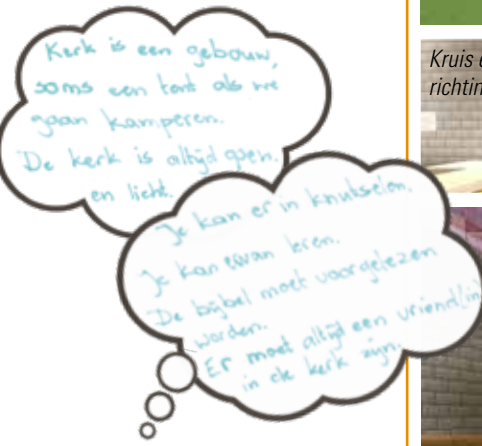 Kerk is een gebouw,
soms een tent als we
gaan kamperen.
De kerk is altijd open.
en licht.
Je kan er in knutselen.
Je kan ervan leren.
De bijbel moet voorgelezen
worden.
Er moet altijd een vriend/in
in de kerk zijn.
Kruis e
richtin